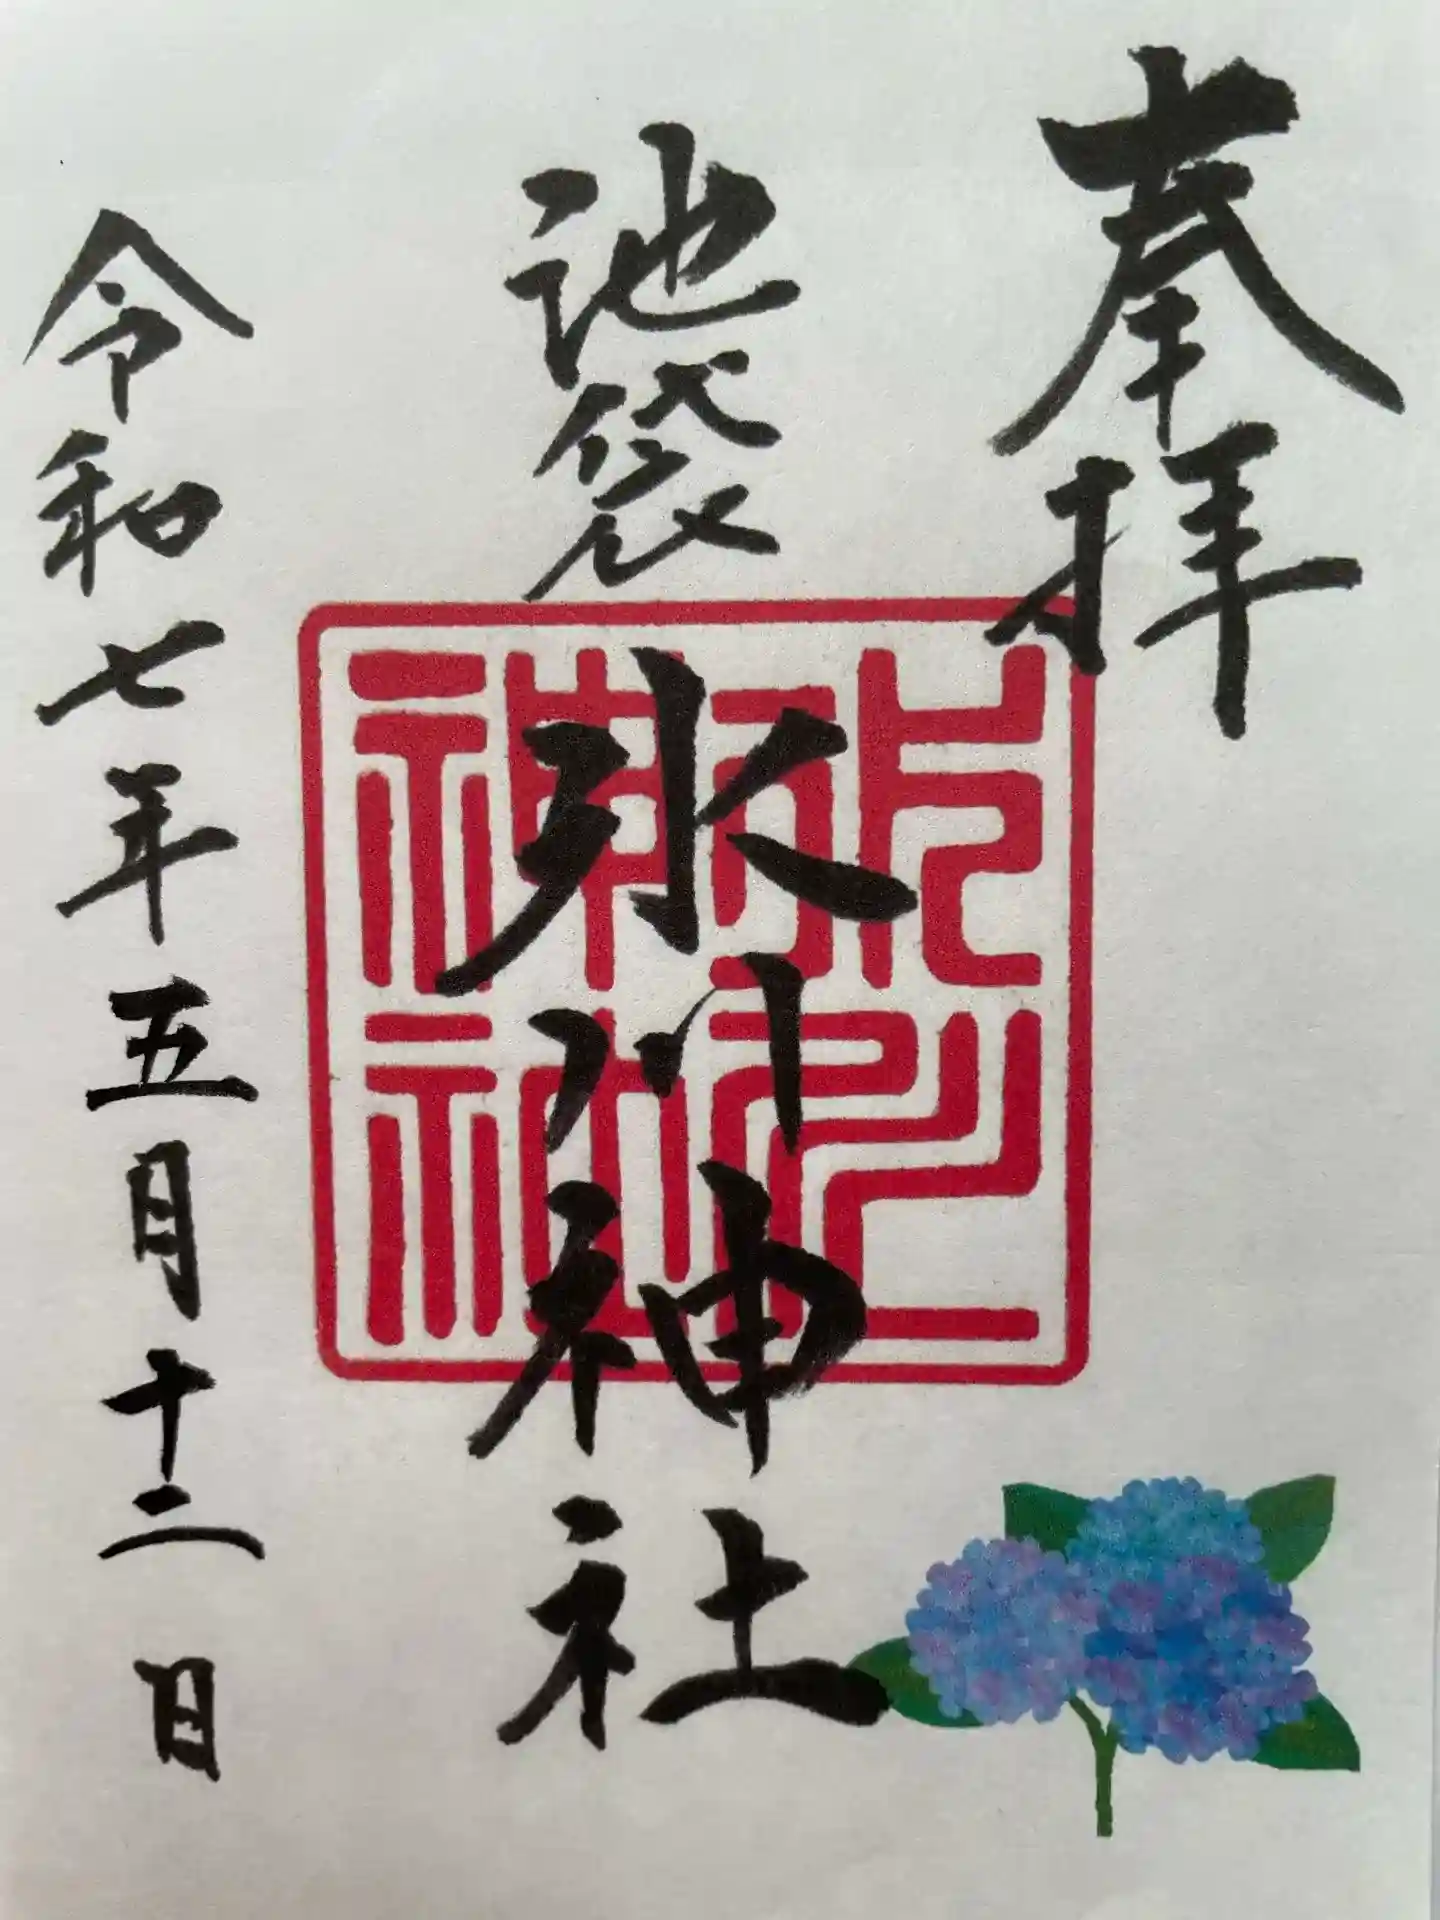 奉拝
池袋
氷川神社
氷川神社
令和七年五月十二日